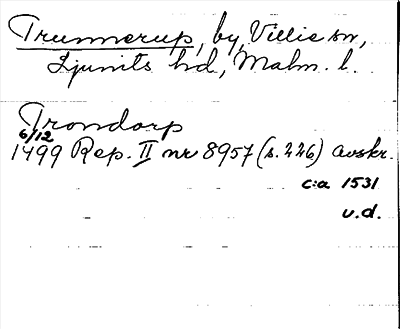 Trunnerup, by, Villie sn,
Ljunits hd, Malm. l.
Trondorp
6/12
1499 Rep. II nr 8957 (s. 226) avskr.
c:a 1531
v.d.